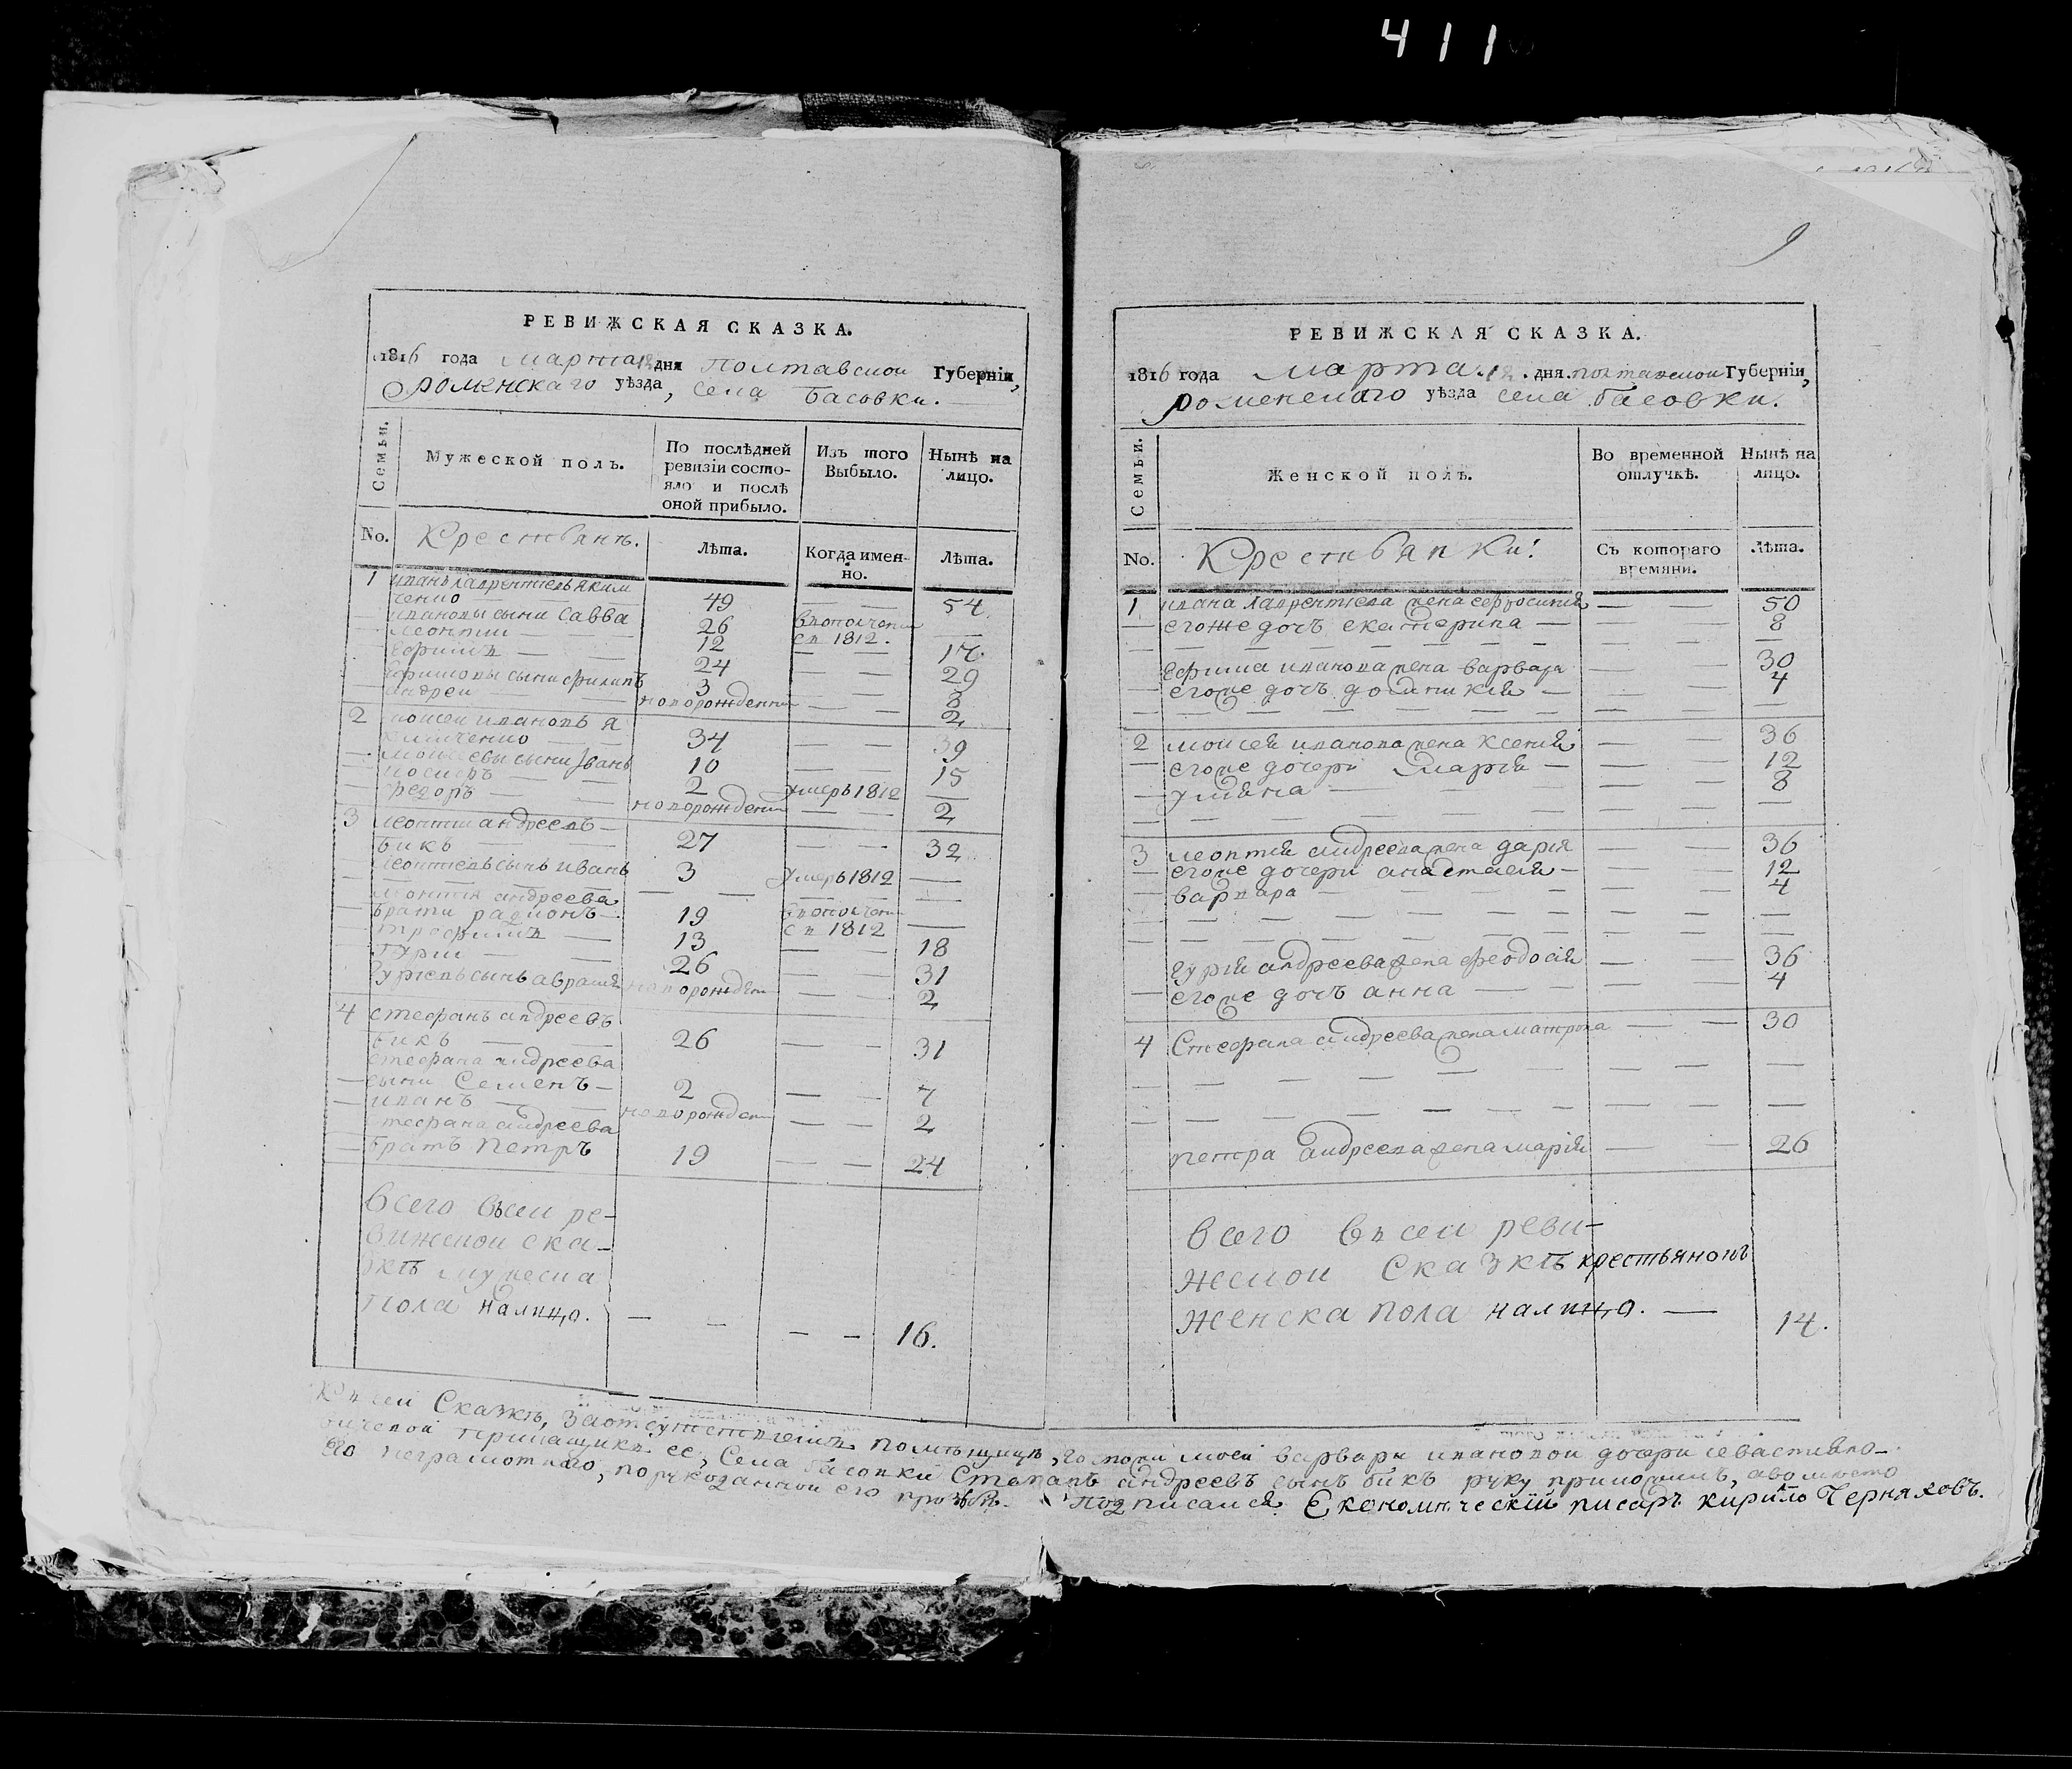 411
9
РЕВИЖСКАЯ СКАЗКА.
1816 года марта 12 дня Полтавской Губерніи,
Роменскаго уѣзда, села Басовки.
Семьи.
Мужеской полъ.
По послѣдней ревизіи состояло и послѣ оной прибыло.
Изъ того Выбыло.
Нынѣ на лицо.
No. Крестьянъ. Лѣта. Когда именно. Лѣта.
1 иванъ лаврентіевъ яким
ченко 49 — — 54
ивановы сыни савва 26 вполчени —
леонтии 12 съ 1812. 17
Ефимъ 24 — — 29
Ефимовы сыни филипъ 3 — — 8
андреи новорожденни — — 2
2 моисеи ивановъ я
кимченко 34 — — 39
моисеевы сыни иванъ 10 — — 15
иосифъ 2 умеръ 1812 —
федоръ новорожденни — — 2
3 леонтии андреевъ
бикъ 27 — — 32
леонтіевъ сынъ иванъ 3 умеръ 1812 —
леонтія андреева
брати радионъ 19 вополчени —
трофимъ 13 съ 1812 18
гурии 26 — — 31
гуріевъ сынъ аврамій новорожден — — 2
4 стефанъ андреевъ
бикъ 26 — — 31
стефана андреева
сыни Семенъ 2 — — 7
иванъ новорожден — — 2
стефана андреева
братъ Петръ 19 — — 24
Всего въсеи ре-
вижской ска-
зкѣ мужеска
пола налицо. — — — — 16.
РЕВИЖСКАЯ СКАЗКА.
1816 года марта 12 дня полтавской Губерніи,
роменскаго уѣзда села басовки.
Семьи.
Женской полъ.
Во временной отлучкѣ.
Нынѣ на лицо.
No. Крестьянки: Съ котораго времяни. Лѣта.
1 ивана лаврентіева жена ефросинія — — 50
егоже дочъ екатерина — — 8
Ефима иванова жена варвара 30
егоже дочъ домникія — — 4
2 моисея иванова жена ксенія — — 36
егоже дочери марія — — 12
улияна — — 8
3 леонтия андреева жена дарія — — 36
егоже дочери анастасія — — 12
варвара — — 4
гурія андреева жена феодосія — — 36
егоже дочъ анна — — 4
4 Стефана андреева жена матрона — — 30
петра андреева жена марія — — 26
всего въсеи реви-
жской сказкѣ крестьянокъ
женска пола налицо. — 14.
Къ сеи Сказкѣ, заотсутствіемъ помѣщицы, госпожи моеи варвары ивановои дочери севастияно-
вичевои прикащикъ ее, Села басовки Стефанъ андреевъ сынъ бикъ руку приложилъ, авомѣсто
его неграмотнаго, порукоданнои его прозбѣ. Подписался Економическій писаръ кирило Черняховъ.